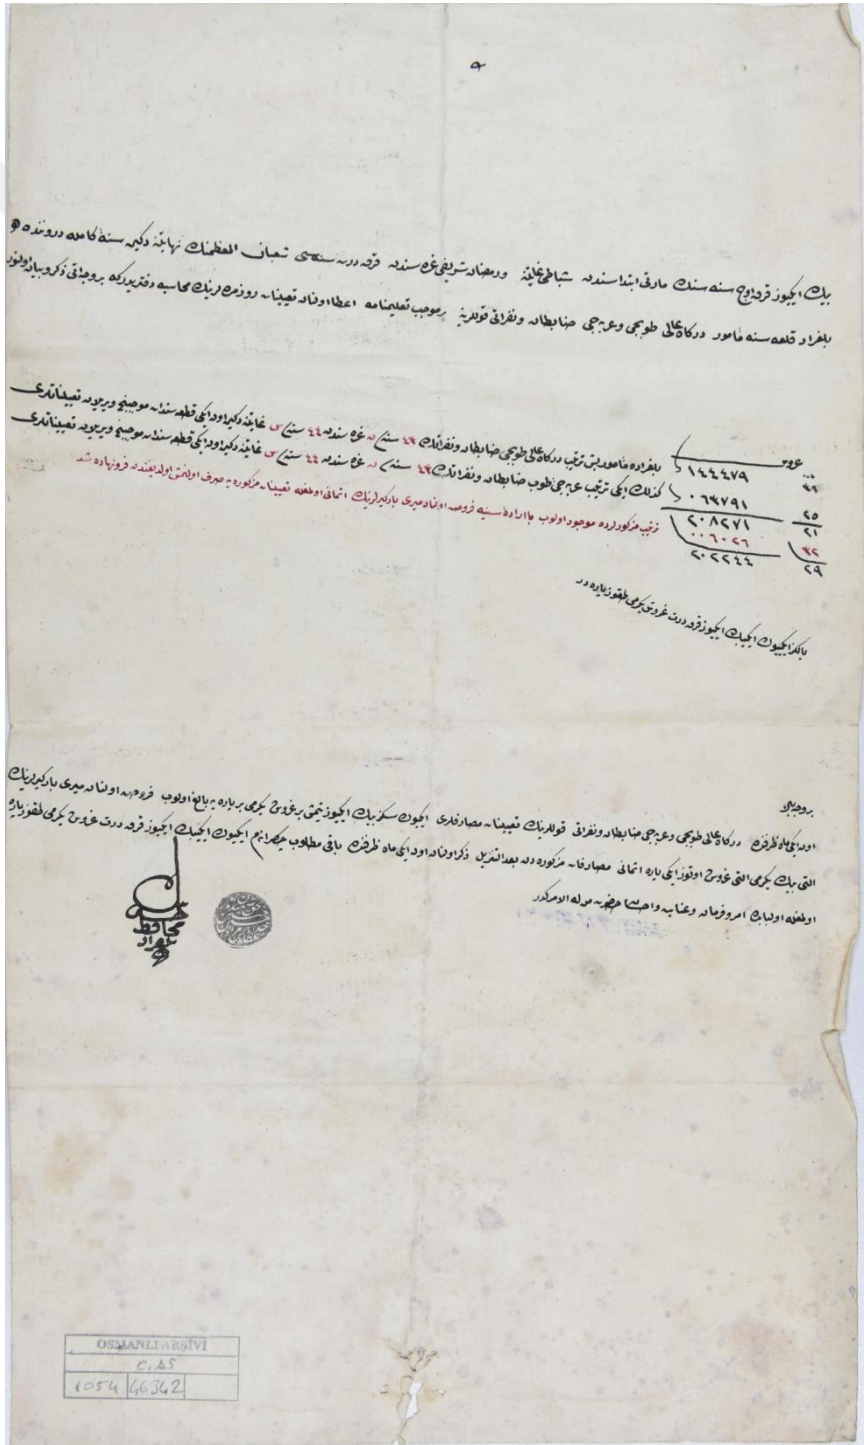 بیك ایكیوز قرق اوچ سنه سنك مارتی ابتداسندن شباطی غایتنه ورمضان شریفی غره سندن قرق درت سنه سی شعبان المعظمنك نهایتنه دكین سنه كامله درونده
بلغراد قلعه سنه مأمور درگاه عالی طوپجی وعربه جی ضابطان ونفراتی قوللرینه برموجب تعلیمنامه اعطا اولنان تعیینات روزمره لرینك محاسبه دفتریدر كه بروجه آتی ذكر وبیان اولنور
غروش
١٤٤٤٧٩ ٣٦ بلغراده مأمور بش ترتیب درگاه عالی طوپجی ضابطان ونفراتنك ٤٣ سنه ن غره سندن ٤٤ سنه ش غایتنه دكین اون ایكی قطعه سندات موجبنجه ویریلان تعییناتلری
٠٦٣٧٩١ ٢٥ كذلك ایكی ترتیب عربه جی طوپ ضابطان ونفراتنك ٤٣ سنه ن غره سندن ٤٤ سنه ش غایتنه دكین اون ایكی قطعه سندات موجبنجه ویریلان تعییناتلری
٢٠٨٢٧١ ٢١
٠٠٦٠٢٦ ٣٢ ترتیب مزكورلرده موجود اولوب با اراده سنیه فروخت اولنان میری باركیرلرینك اثمانی اولمغله تعیینات مزكوره یه صرف اولنمش اولدیغندن فرونهاده شد
٢٠٢٢٤٤ ٢٩
یالكز ایكیوك ایكیبیك ایكیوز قرق درت غروش یكرمی طقوز پاره در
اون ایكی ماه ظرفنده درگاه عالی طوپجی وعربه جی ضابطان ونفراتی قوللرینك تعیینات مصارفلری ایكیوك سكز بیك ایكیوز یتمش بر غروش یكرمی بر پاره یه بالغ اولوب فروخت اولنان میری باركیرلرینك
التی بیك یكرمی التی غروش اوتوز ایكی پاره اثمانی مصارفات مزكوره دن بعد التنزیل ذكر اولنان اون ایكی ماه ظرفنده باقی مطلوب چاكرانه م ایكیوك ایكیبیك ایكیوز قرق درت غروش یكرمی طقوز پاره
اولمغله اولبابده امر وفرمان وعنایت واحسان حضرت من له الامركدر
محافظ
بلغراد
OSMANLI ARŞİVİ
C.AS
1054 46342